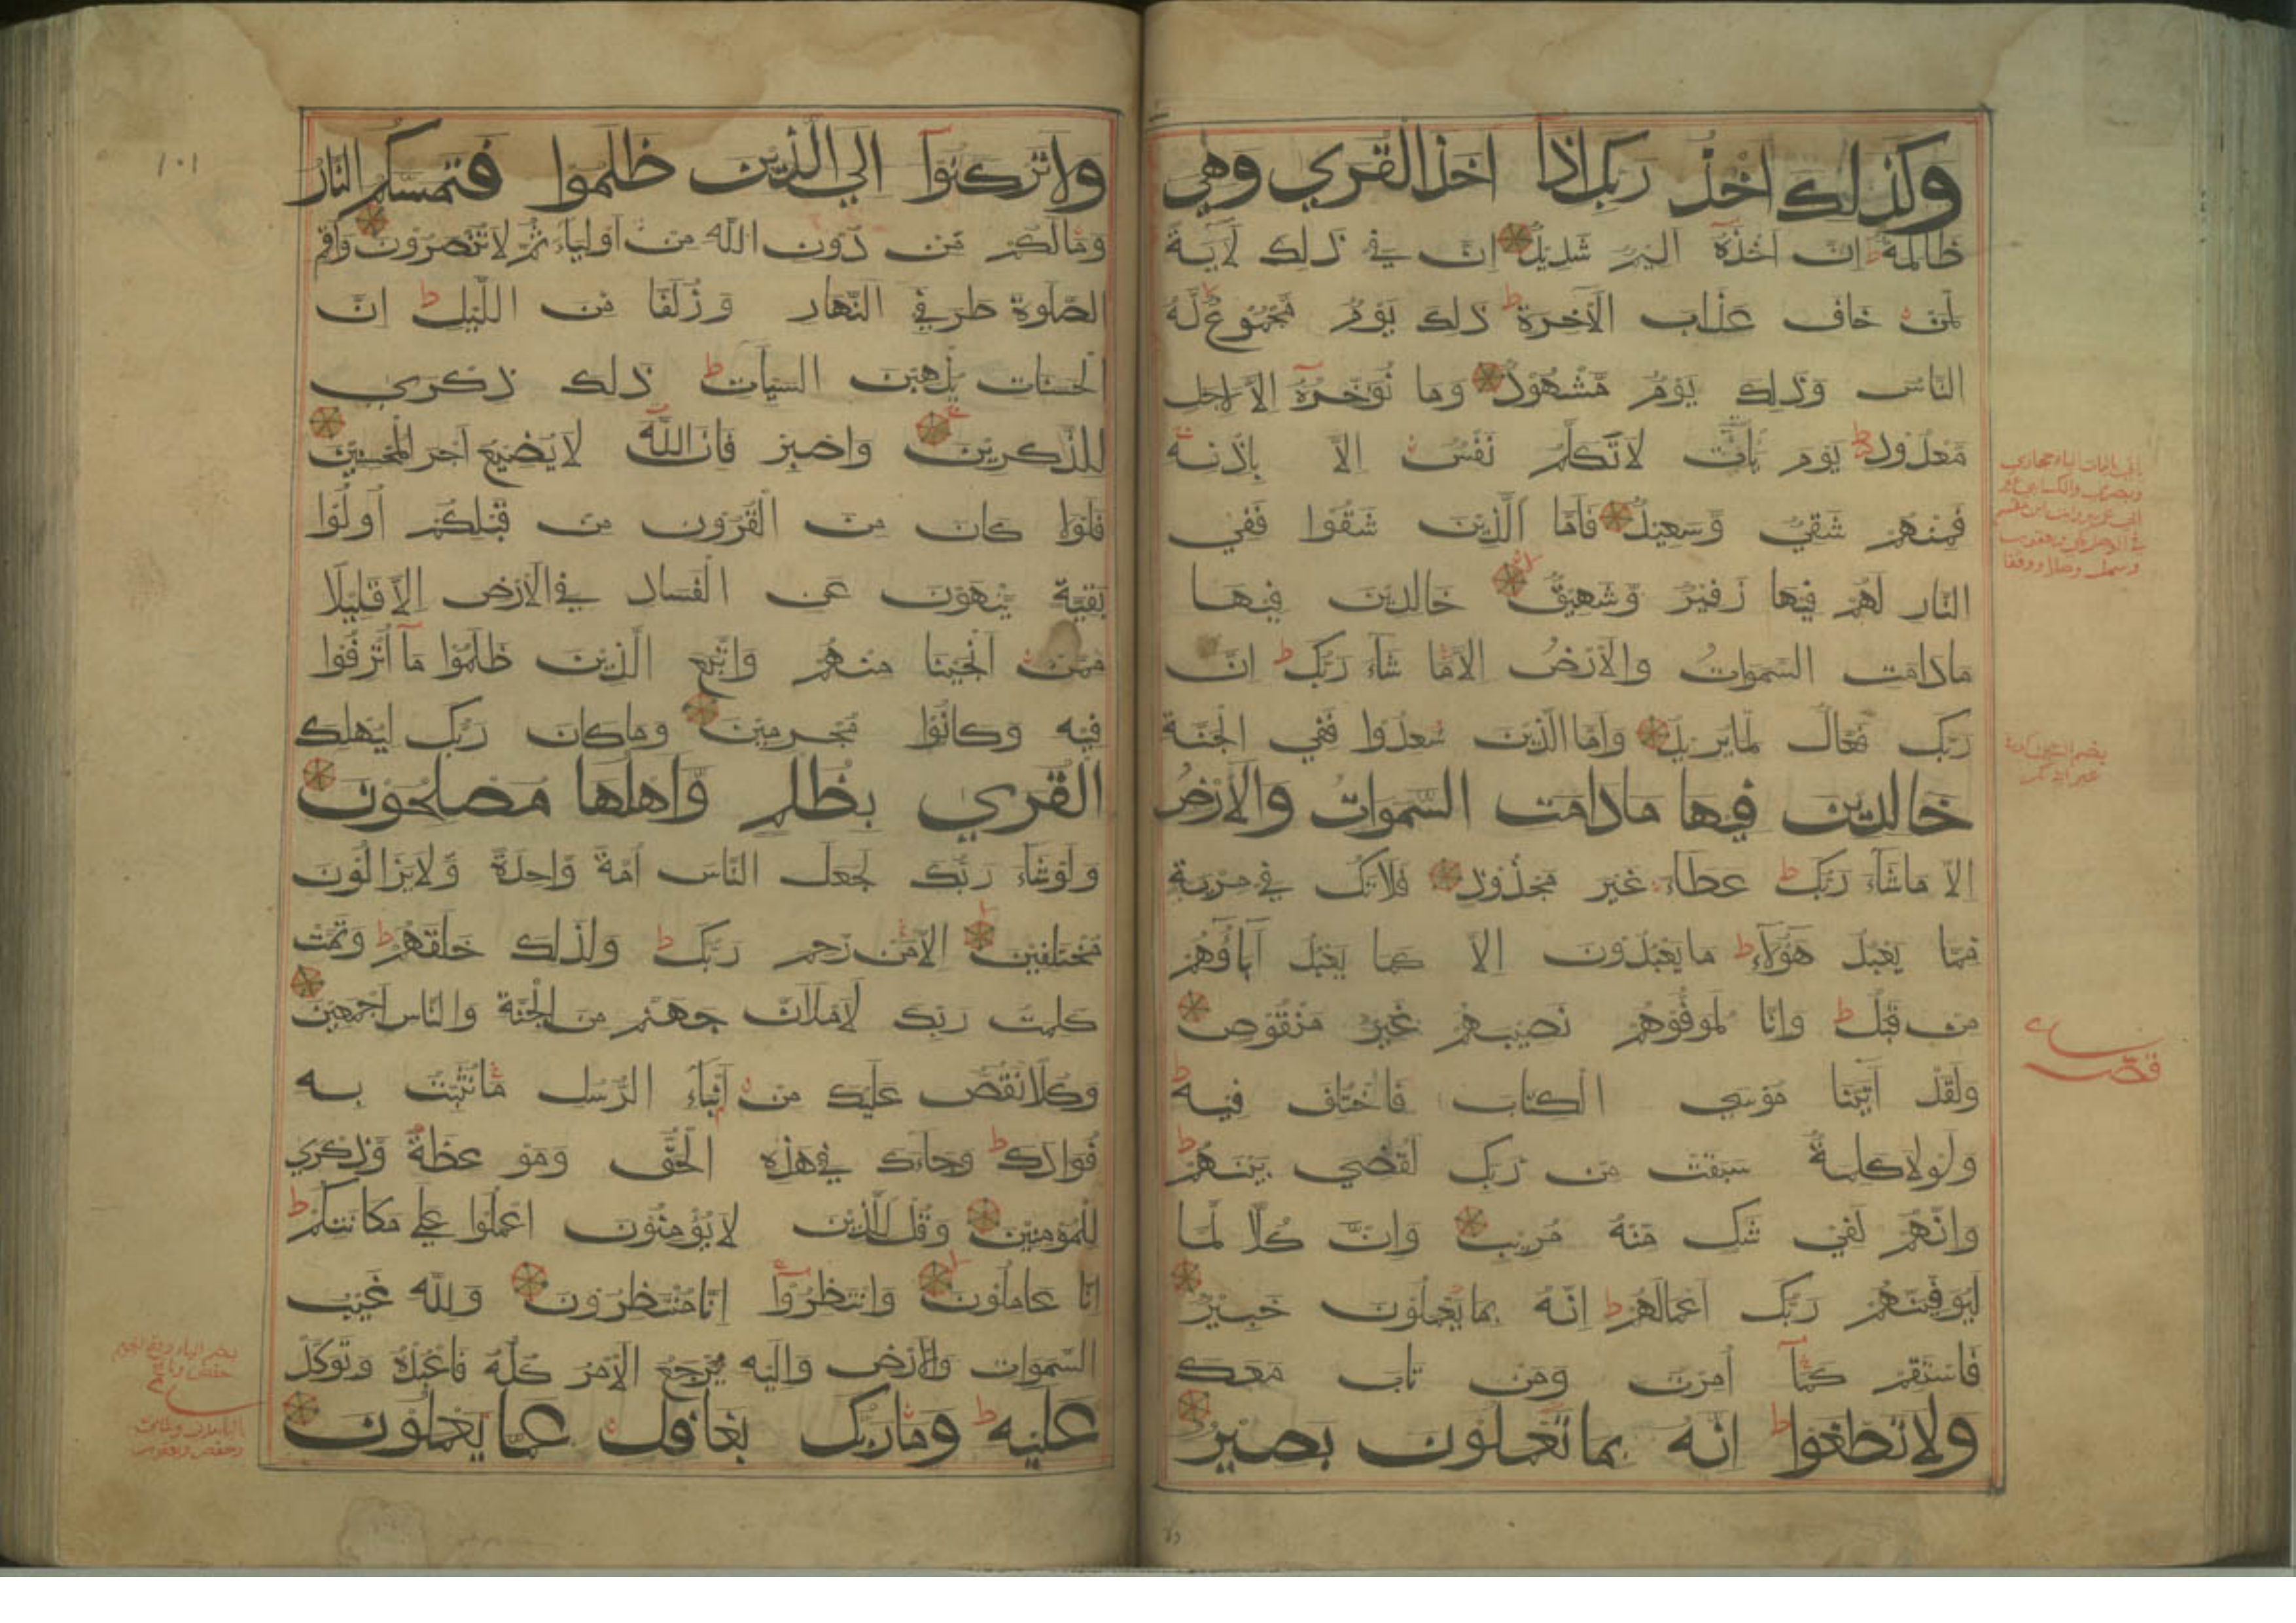 وكذلك اخذ ربك اذا اخذ القري وهي
ظالمة ط ان اخذه اليم شديد ان في ذلك لاية
لمن خاف عذاب الاخرة ط ذلك يوم مجموع له
الناس وذلك يوم مشهود وما نؤخره الا لاجل
معدود ط يوم يات لا تكلم نفس الا باذنه
فمنهم شقي وسعيد فاما الذين شقوا ففي
النار لهم فيها زفير وشهيق خالدين فيها
مادامت السموات والارض الا ما شاء ربك ط ان
ربك فعال لما يريد واما الذين سعدوا ففي الجنة
خالدين فيها مادامت السموات والارض
الا ماشاء ربك ط عطاء غير مجذوذ فلاتك في مرية
مما يعبد هؤلاء ط ما يعبدون الا كما يعبد آباؤهم
من قبل ط وانا لموفوهم نصيبهم غير منقوص
ولقد آتينا موسي الكتاب فاختلف فيه ط
ولولا كلمة سبقت من ربك لقضي بينهم ط
وانهم لفي شك منه مريب وان كلا لما
ليوفينهم ربك اعمالهم ط انه بما يعملون خبير
فاستقم كما امرت ومن تاب معك
ولا تطغوا ط انه بما تعملون بصير
١٠١
ولا تركنوا الي الذين ظلموا فتمسكم النار
ومالكم من دون الله من اولياء ثم لا تنصرون واقم
الصلوة طرفي النهار وزلفا من الليل ط ان
الحسنات يذهبن السيات ط ذلك ذكري
للذكرين واصبر فان الله لا يضيع اجر المحسنين
فلولا كان من القرون من قبلكم اولوا
بقية ينهون عن الفساد في الارض الا قليلا
ممن انجينا منهم واتبع الذين ظلموا ما اترفوا
فيه وكانوا مجرمين وماكان ربك ليهلك
القري بظلم واهلها مصلحون
ولوشاء ربك لجعل الناس امة واحدة ولا يزالون
مختلفين الا من رحم ربك ط ولذلك خلقهم ط وتمت
كلمت ربك لاملان جهنم من الجنة والناس اجمعين
وكلا نقص عليك من انباء الرسل ما نثبت به
فوادك ط وجاءك في هذه الحق وموعظة وذكري
للمؤمنين وقل للذين لا يؤمنون اعملوا علي مكانتكم ط
انا عاملون وانتظروا انا منتظرون ولله غيب
السموات والارض واليه يرجع الامر كله فاعبده وتوكل
عليه ط وما ربك بغافل عما يعملون